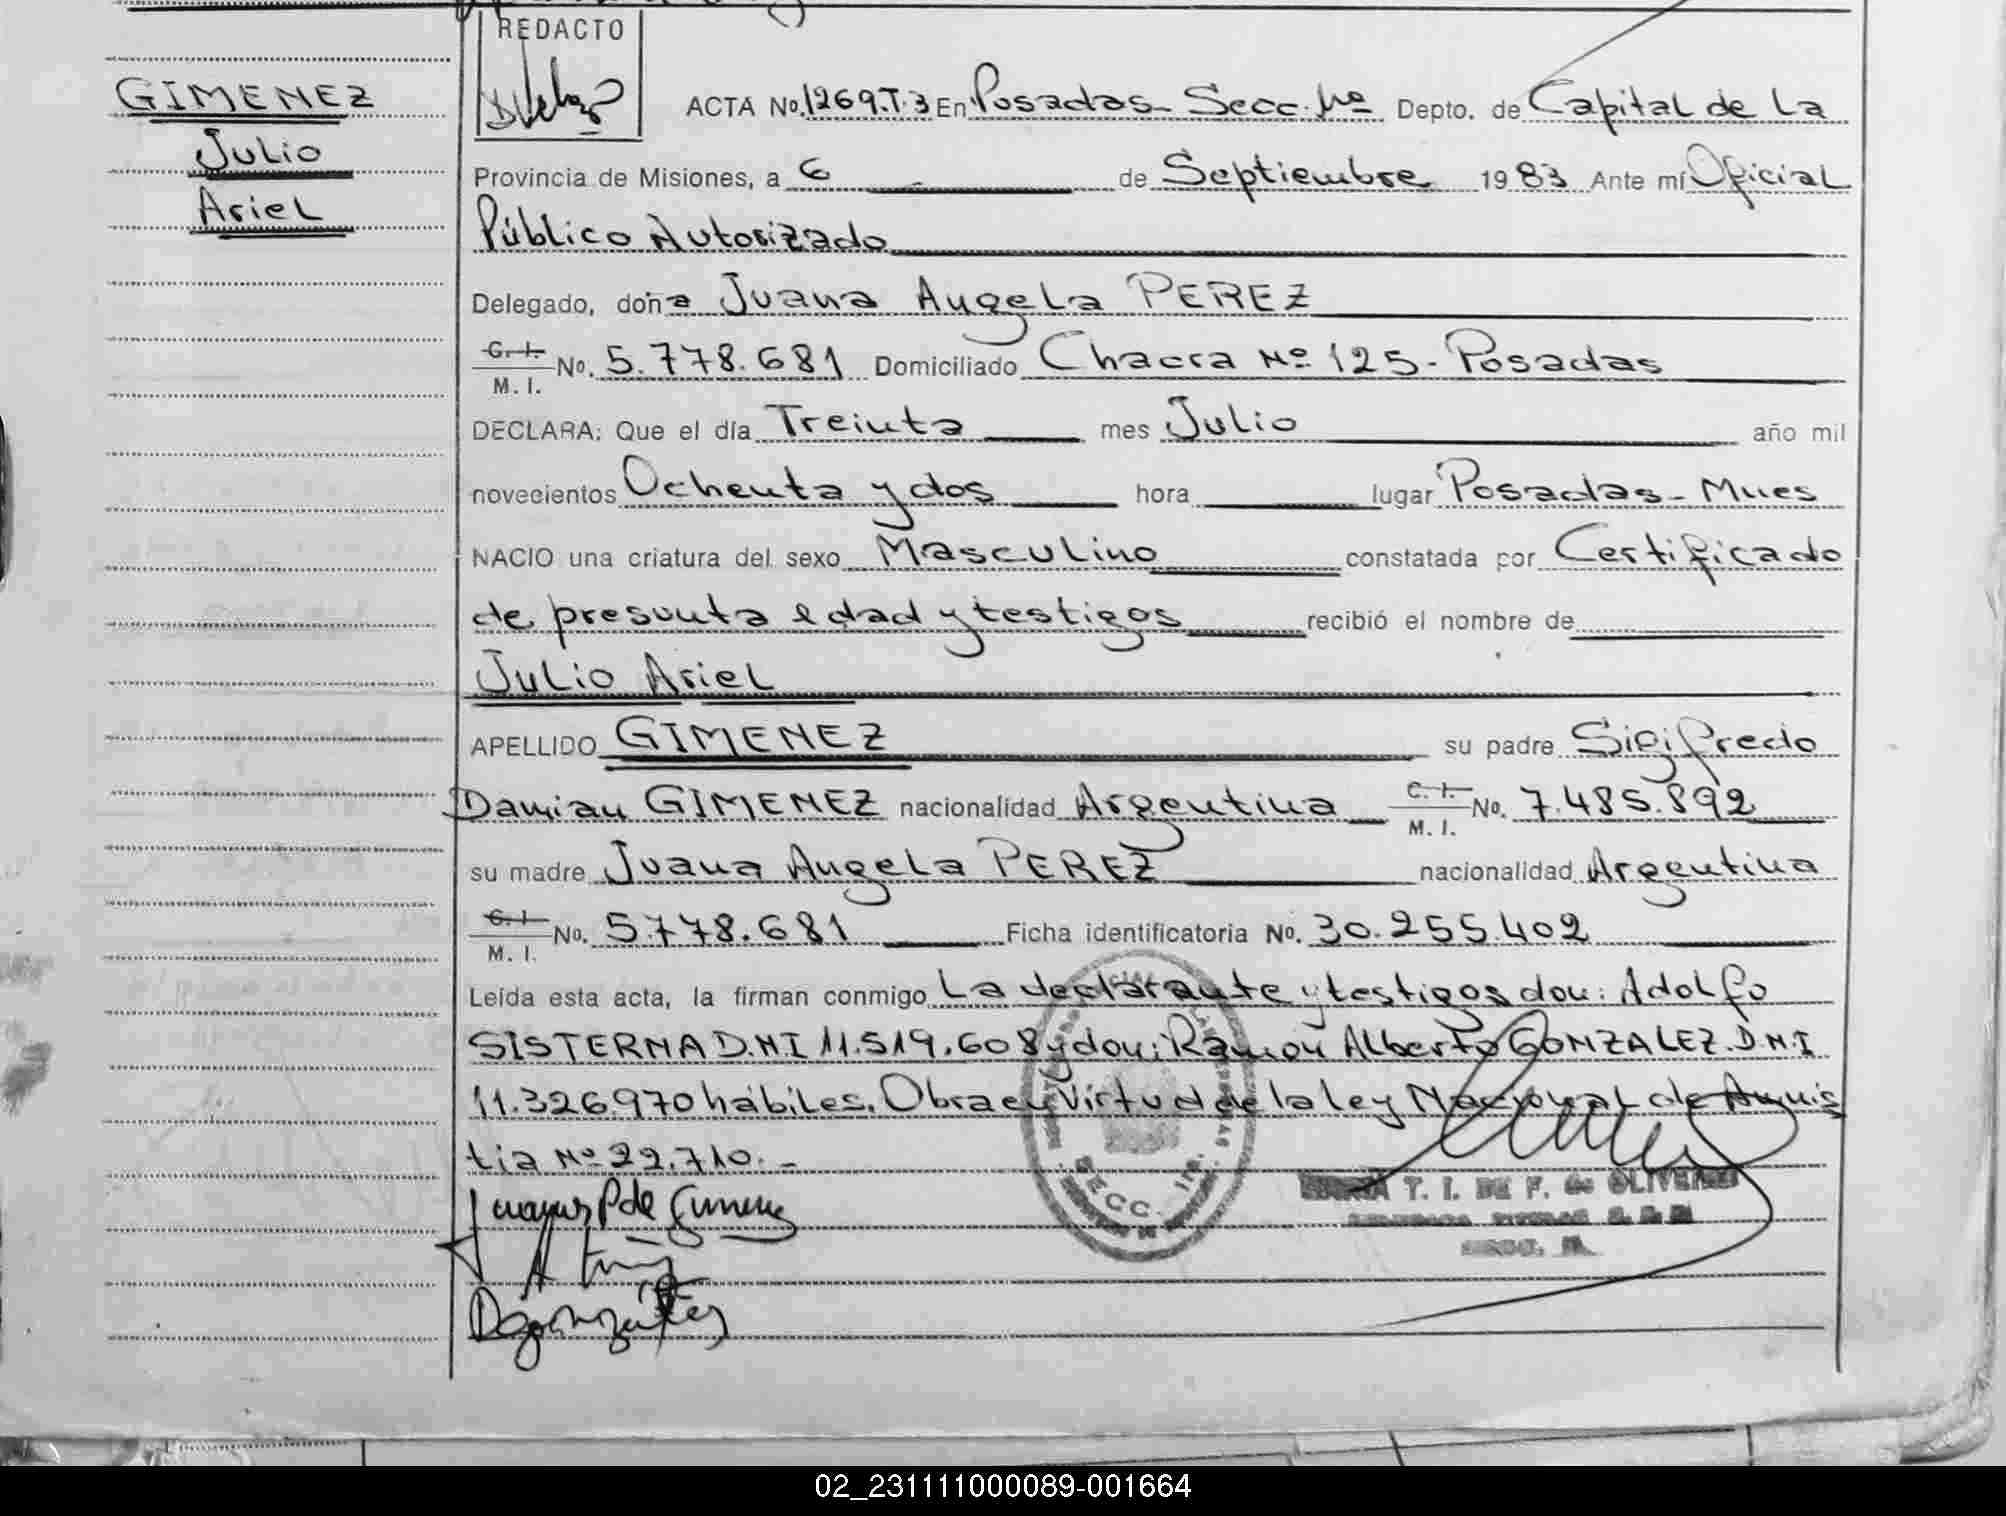 REDACTO
GIMENEZ
Julio
Ariel
ACTA No. 1269.T.3 En Posadas- Secc. Nº Depto. de Capital de La
Provincia de Misiones, a 6 de Septiembre 1983 Ante mí Oficial
Público Autorizado
Delegado, doña Juana Angela PEREZ
C. I. M. I. No. 5.778.681 Domiciliado Chacra Nº 125- Posadas
DECLARA: Que el día Treinta mes Julio año mil
novecientos Ochenta y dos hora lugar Posadas- Mnes
NACIO una criatura del sexo Masculino constatada por Certificado
de presunta edad y testigos recibió el nombre de
Julio Ariel
APELLIDO GIMENEZ su padre Sigifredo
Damian GIMENEZ nacionalidad Argentina C. I. M. I. No. 7.485.892
su madre Juana Angela PEREZ nacionalidad Argentina
C. I. M. I. No. 5.778.681 Ficha identificatoria No. 30.255.402
Leída esta acta, la firman conmigo La declarante y testigos don: Adolfo
SISTERNA D.N.I 11.519.608 y don: Ramón Alberto GONZALEZ. D.N.I
11.326.970 hábiles. Obra en Virtud de la ley Nacional de Amnis
tia Nº 22.710.-
T. I. DE F. de OLIVEIRA
SECC.
02_231111000089-001664